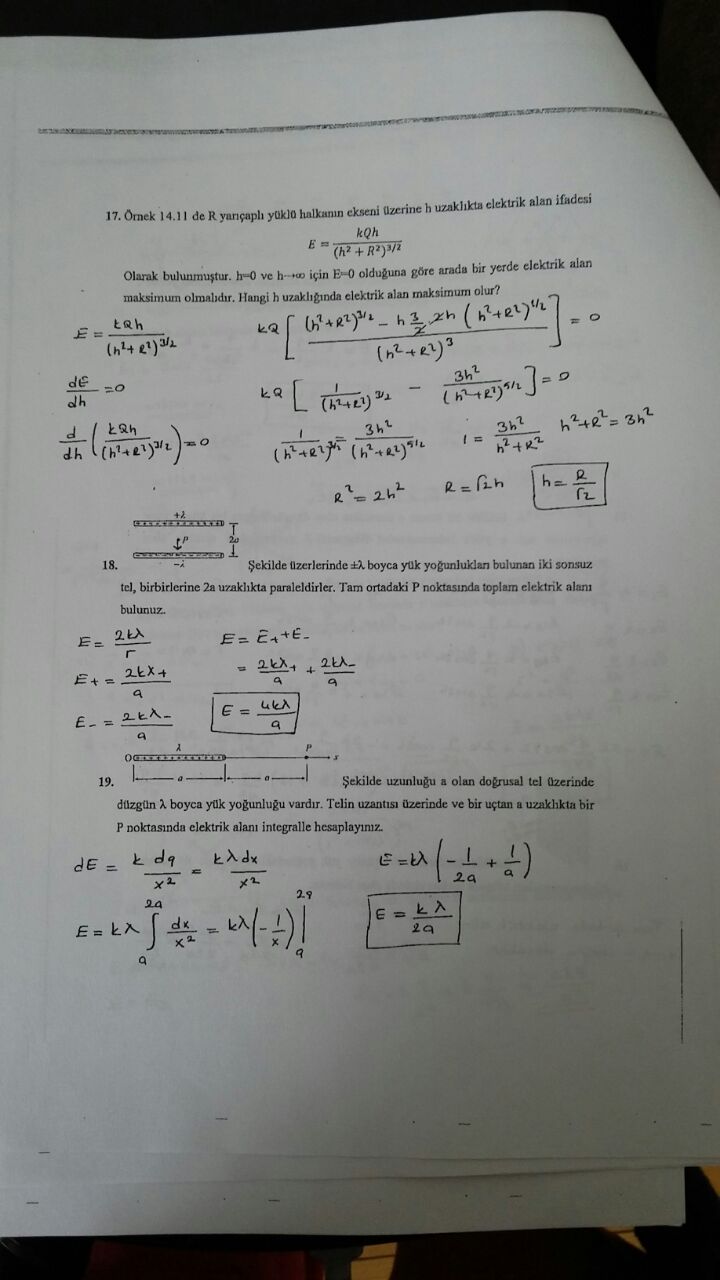 17. Örnek 14.11 de R yarıçaplı yüklü halkanın ekseni üzerine h uzaklıkta elektrik alan ifadesi
E = kQh / (h² + R²)^3/2
Olarak bulunmuştur. h=0 ve h→∞ için E=0 olduğuna göre arada bir yerde elektrik alan
maksimum olmalıdır. Hangi h uzaklığında elektrik alan maksimum olur?
E = kQh / (h²+R²)^3/2
kQ [ ((h²+R²)^3/2 - h 3/2 2h (h²+R²)^1/2) / (h²+R²)^3 ] = 0
dE/dh = 0
kQ [ 1/(h²+R²)^3/2 - 3h²/(h²+R²)^5/2 ] = 0
d/dh ( kQh / (h²+R²)^3/2 ) = 0
1/(h²+R²)^3/2 = 3h²/(h²+R²)^5/2
1 = 3h²/(h²+R²)
h²+R² = 3h²
R² = 2h²
R = √2h
h = R/√2
+λ
P
2a
-λ
18. Şekilde üzerlerinde ±λ boyca yük yoğunlukları bulunan iki sonsuz
tel, birbirlerine 2a uzaklıkta paraleldirler. Tam ortadaki P noktasında toplam elektrik alanı
bulunuz.
E = 2kλ/r
E = E₊ + E₋
E₊ = 2kλ₊/a
= 2kλ₊/a + 2kλ₋/a
E₋ = 2kλ₋/a
E = 4kλ/a
λ P
O x
a a
19. Şekilde uzunluğu a olan doğrusal tel üzerinde
düzgün λ boyca yük yoğunluğu vardır. Telin uzantısı üzerinde ve bir uçtan a uzaklıkta bir
P noktasında elektrik alanı integralle hesaplayınız.
dE = k dq/x² = kλdx/x²
E = kλ (-1/2a + 1/a)
E = kλ ∫_a^2a dx/x² = kλ(-1/x) |_a^2a
E = kλ/2a